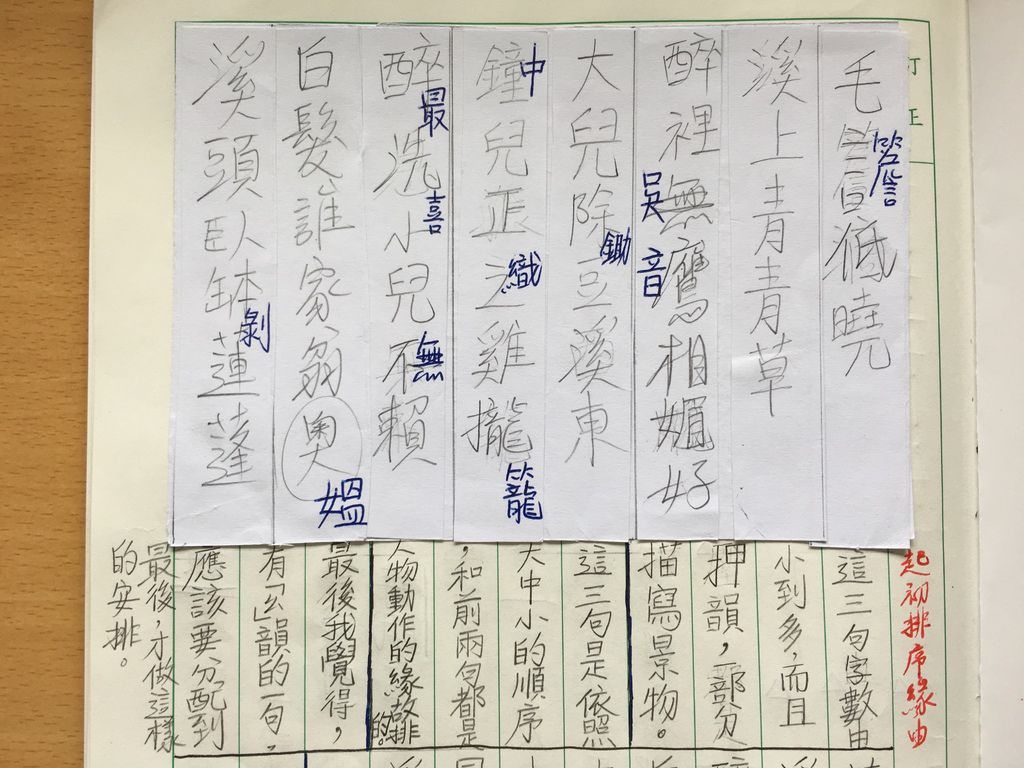 訂正
毛曉
簷
溪上青青草
醉裡無鷹相媚好
吳音
大兒除豆溪東
鋤
鐘兒之雞攏
中
織
籠
醉洗小兒不賴
最
喜
無
白髮誰家翁奧
媼
溪頭臥缽蓮蓬
剝
起初排序緣由
這三句字數由
小到多,而且
押韻,部分
描寫景物。
這三句是依照
大中小的順序
,和前兩句都是
人物動作的緣故排
的。
最後我覺得,
有「ㄠ」韻的一句,
應該要分配到
最後,才做這樣
的安排。